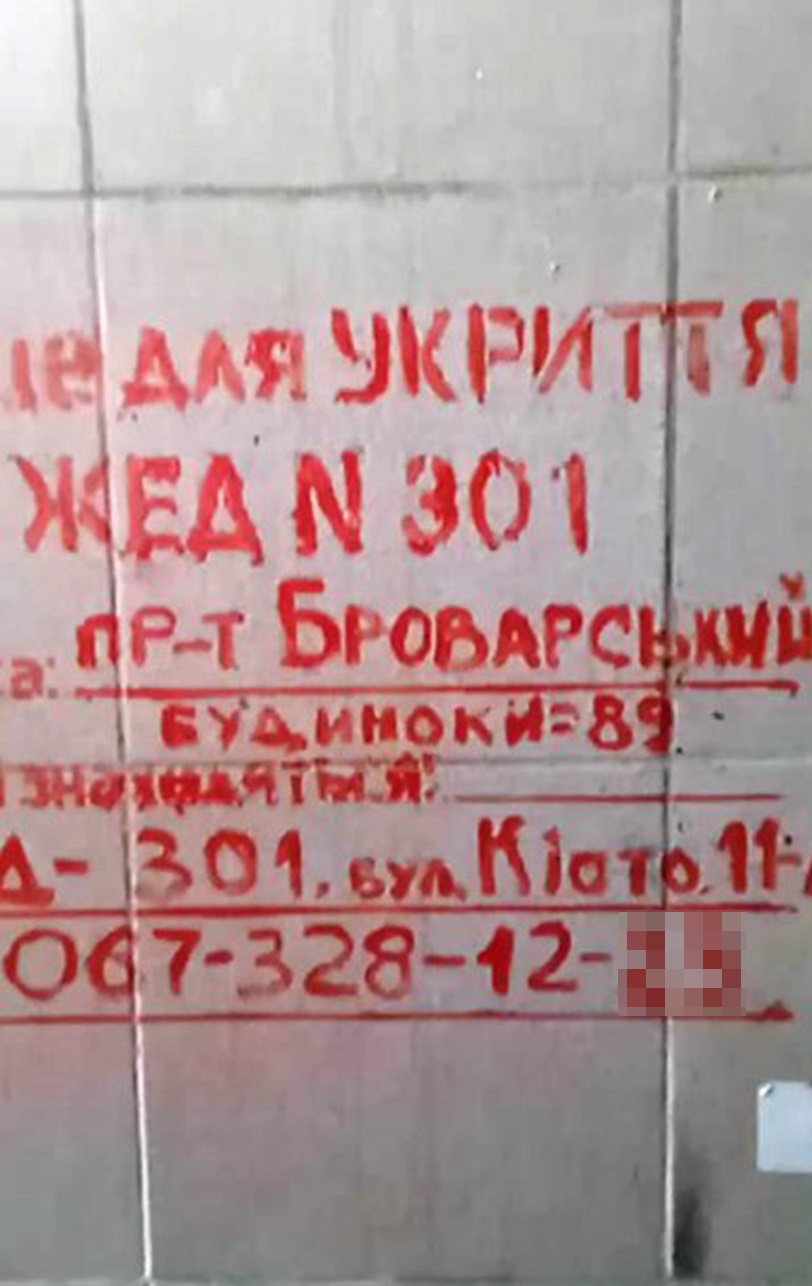 для УКРИТТЯ
ЖЕД N 301
пр-т Броварський
будиноки=89
знаходяться:
301. вул. Кіото. 11-
067-328-12-